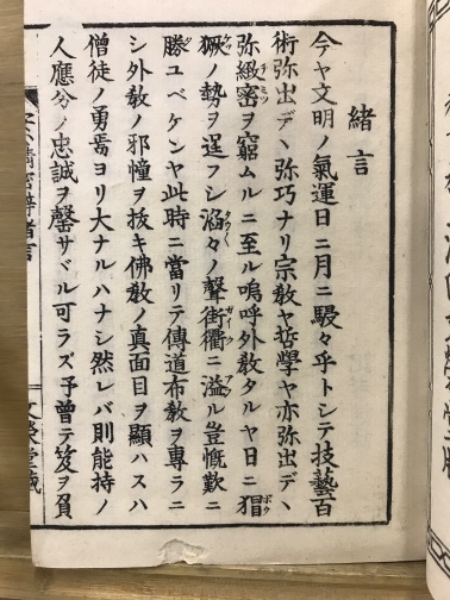 緒言
今ヤ文明ノ氣運日ニ月ニ駸々乎トシテ技藝百
術弥出デヽ弥巧ナリ宗敎ヤ哲學ヤ亦弥出デヽ
弥緻密ヲ窮ムルニ至ル嗚呼外敎タルヤ日ニ猖
獗ノ勢ヲ逞フシ滔々ノ聲街衢ニ溢ル豈慨歎ニ
勝ユベケンヤ此時ニ當リテ傳道布敎ヲ專ラニ
シ外敎ノ邪幢ヲ抜キ佛敎ノ真面目ヲ顯ハスハ
僧徒ノ勇焉ヨリ大ナルハナシ然レバ則能持ノ
人應分ノ忠誠ヲ罄サヾル可ラズ予曾テ笈ヲ負